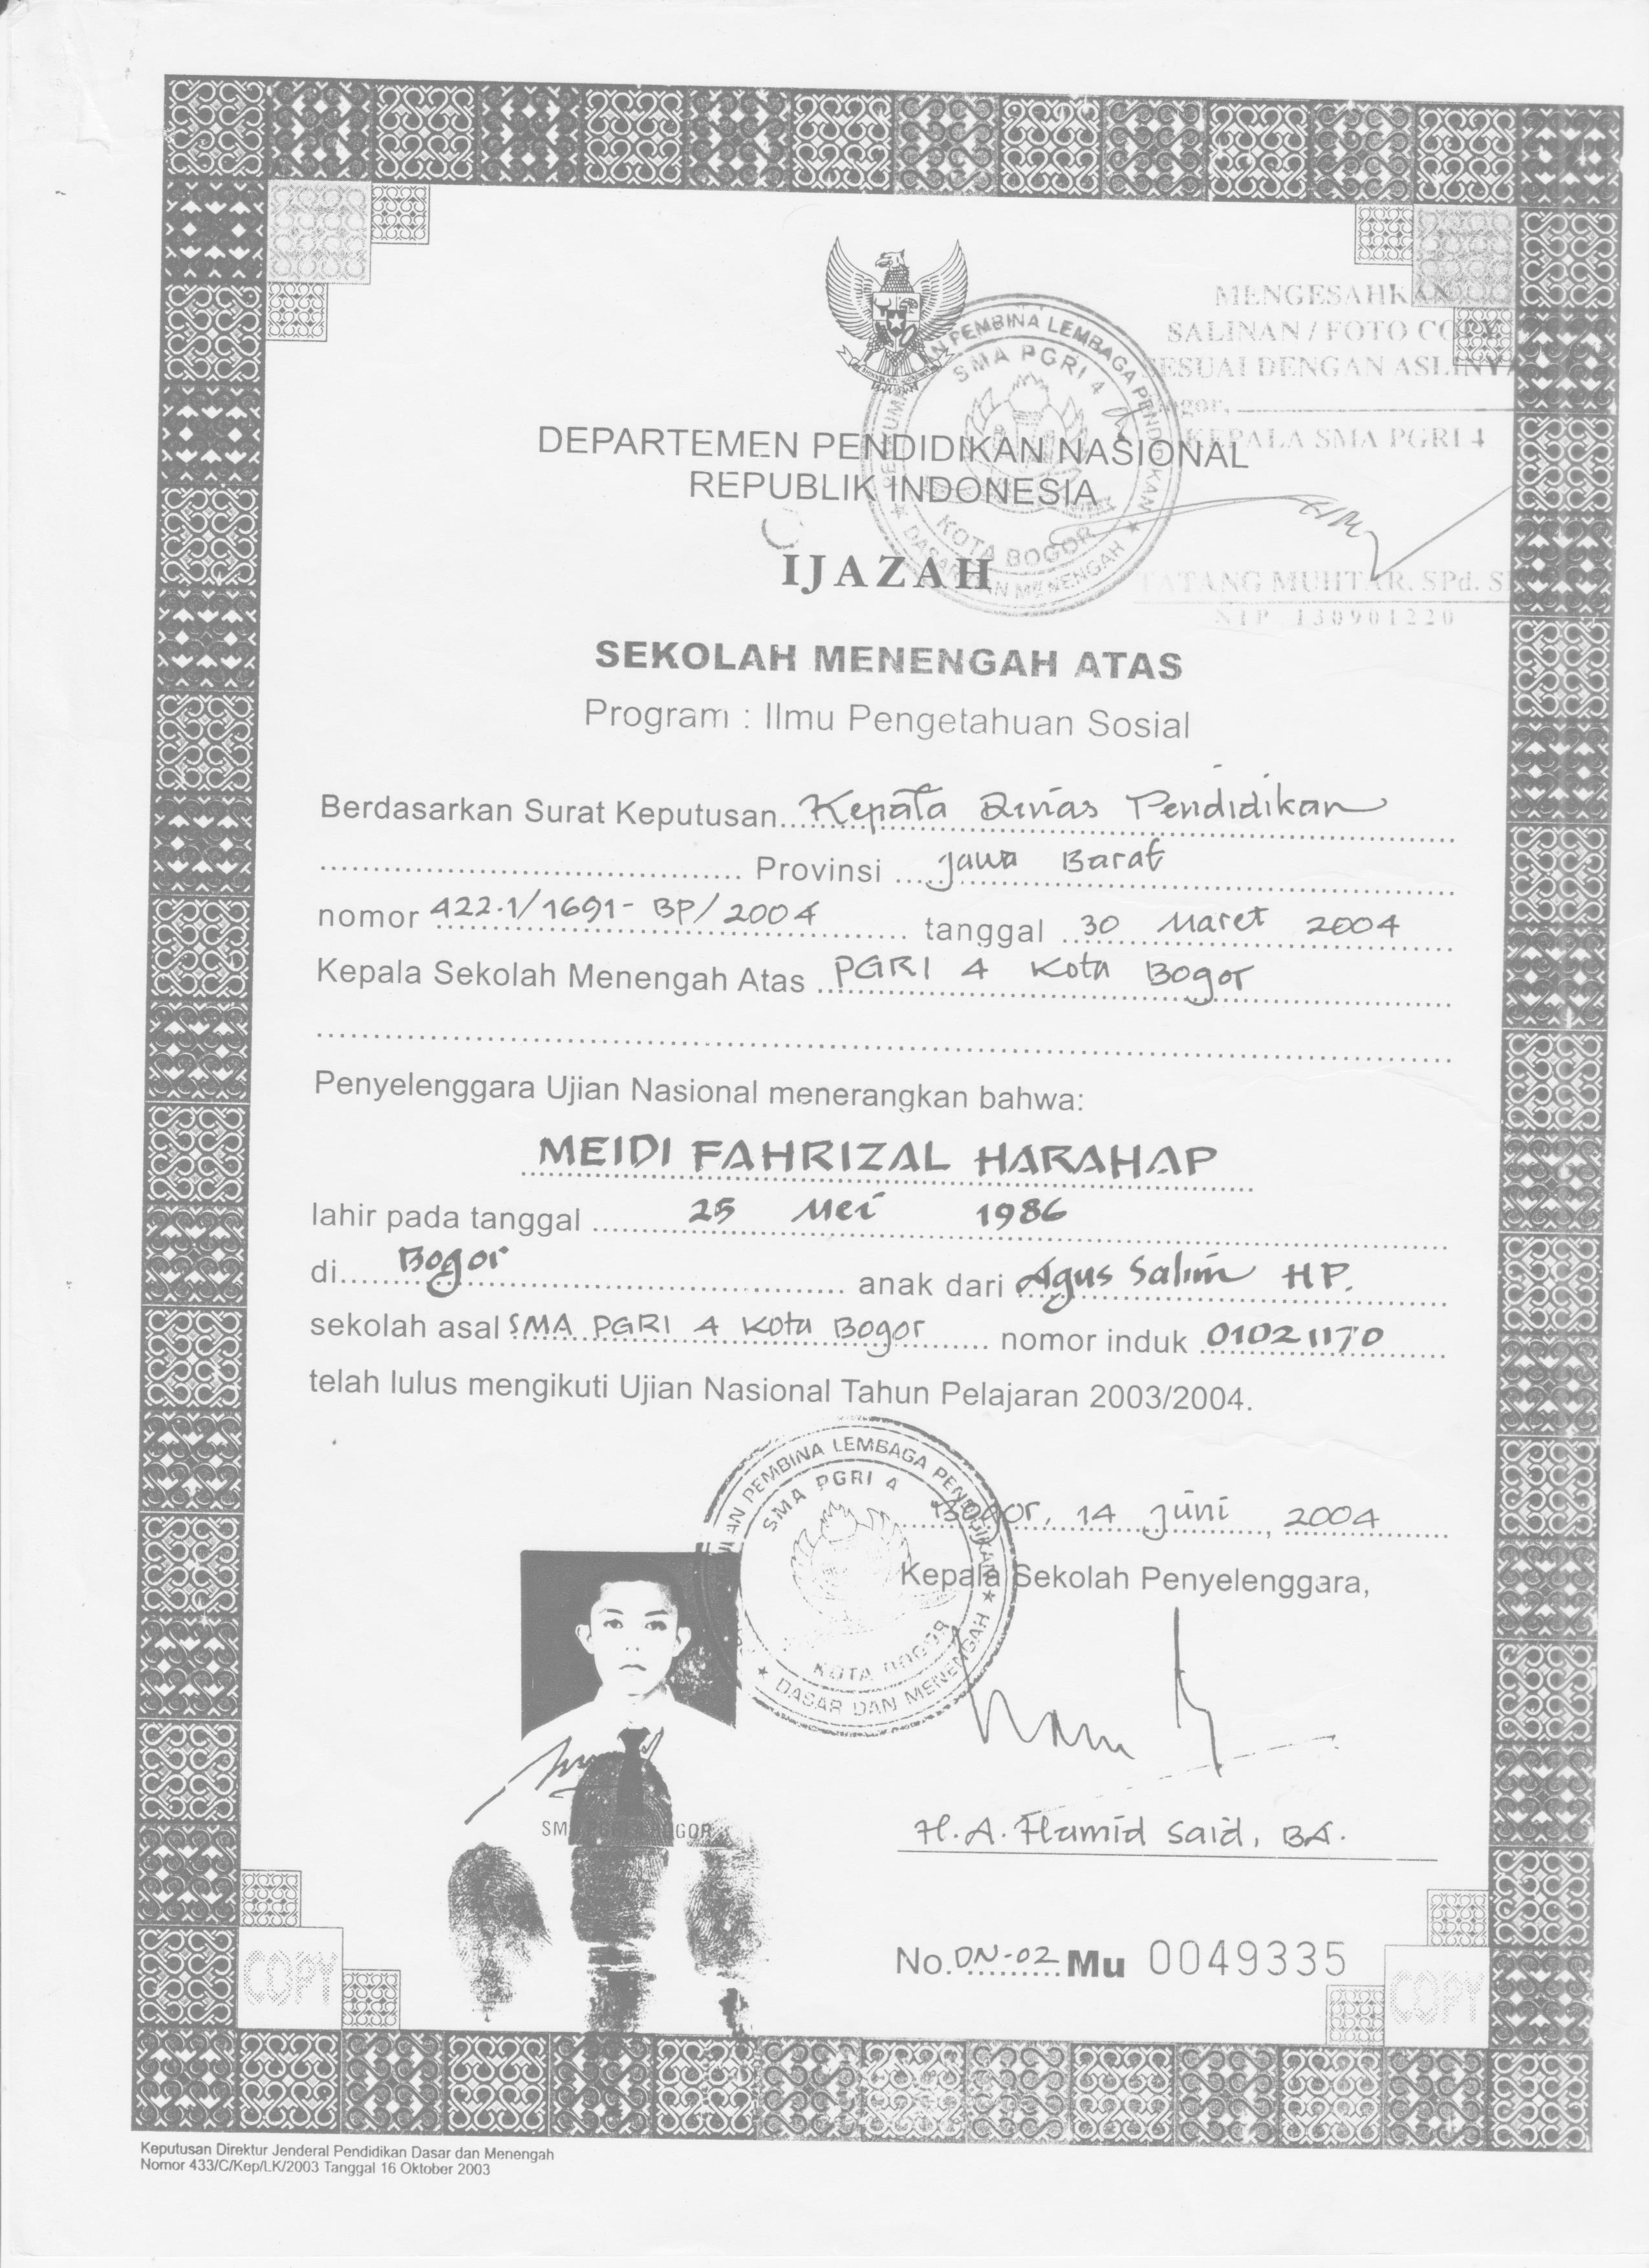 MENGESAHKAN
SALINAN / FOTO COPY
SESUAI DENGAN ASLINYA
Bogor,
KEPALA SMA PGRI 4
PEMBINA LEMBAGA PENDIDIKAN
SMA PGRI 4
KOTA BOGOR
DASAR DAN MENENGAH
DEPARTEMEN PENDIDIKAN NASIONAL
REPUBLIK INDONESIA
TATANG MUHTAR, SPd.
NIP 130901220
IJAZAH
SEKOLAH MENENGAH ATAS
Program : Ilmu Pengetahuan Sosial
Berdasarkan Surat Keputusan Kepala Dinas Pendidikan
Provinsi Jawa Barat
nomor 422.1/1691-BP/2004 tanggal 30 Maret 2004
Kepala Sekolah Menengah Atas PGRI 4 Kota Bogor
Penyelenggara Ujian Nasional menerangkan bahwa:
MEIDI FAHRIZAL HARAHAP
lahir pada tanggal 25 Mei 1986
di Bogor anak dari Agus Salim HP.
sekolah asal SMA PGRI 4 Kota Bogor nomor induk 01021170
telah lulus mengikuti Ujian Nasional Tahun Pelajaran 2003/2004.
PEMBINA LEMBAGA PENDIDIKAN
SMA PGRI 4
KOTA BOGOR
DASAR DAN MENENGAH
Bogor, 14 Juni, 2004
Kepala Sekolah Penyelenggara,
H.A. Hamid Said, BA.
No. DN-02 Mu 0049335
COPY
COPY
Keputusan Direktur Jenderal Pendidikan Dasar dan Menengah
Nomor 433/C/Kep/LK/2003 Tanggal 16 Oktober 2003